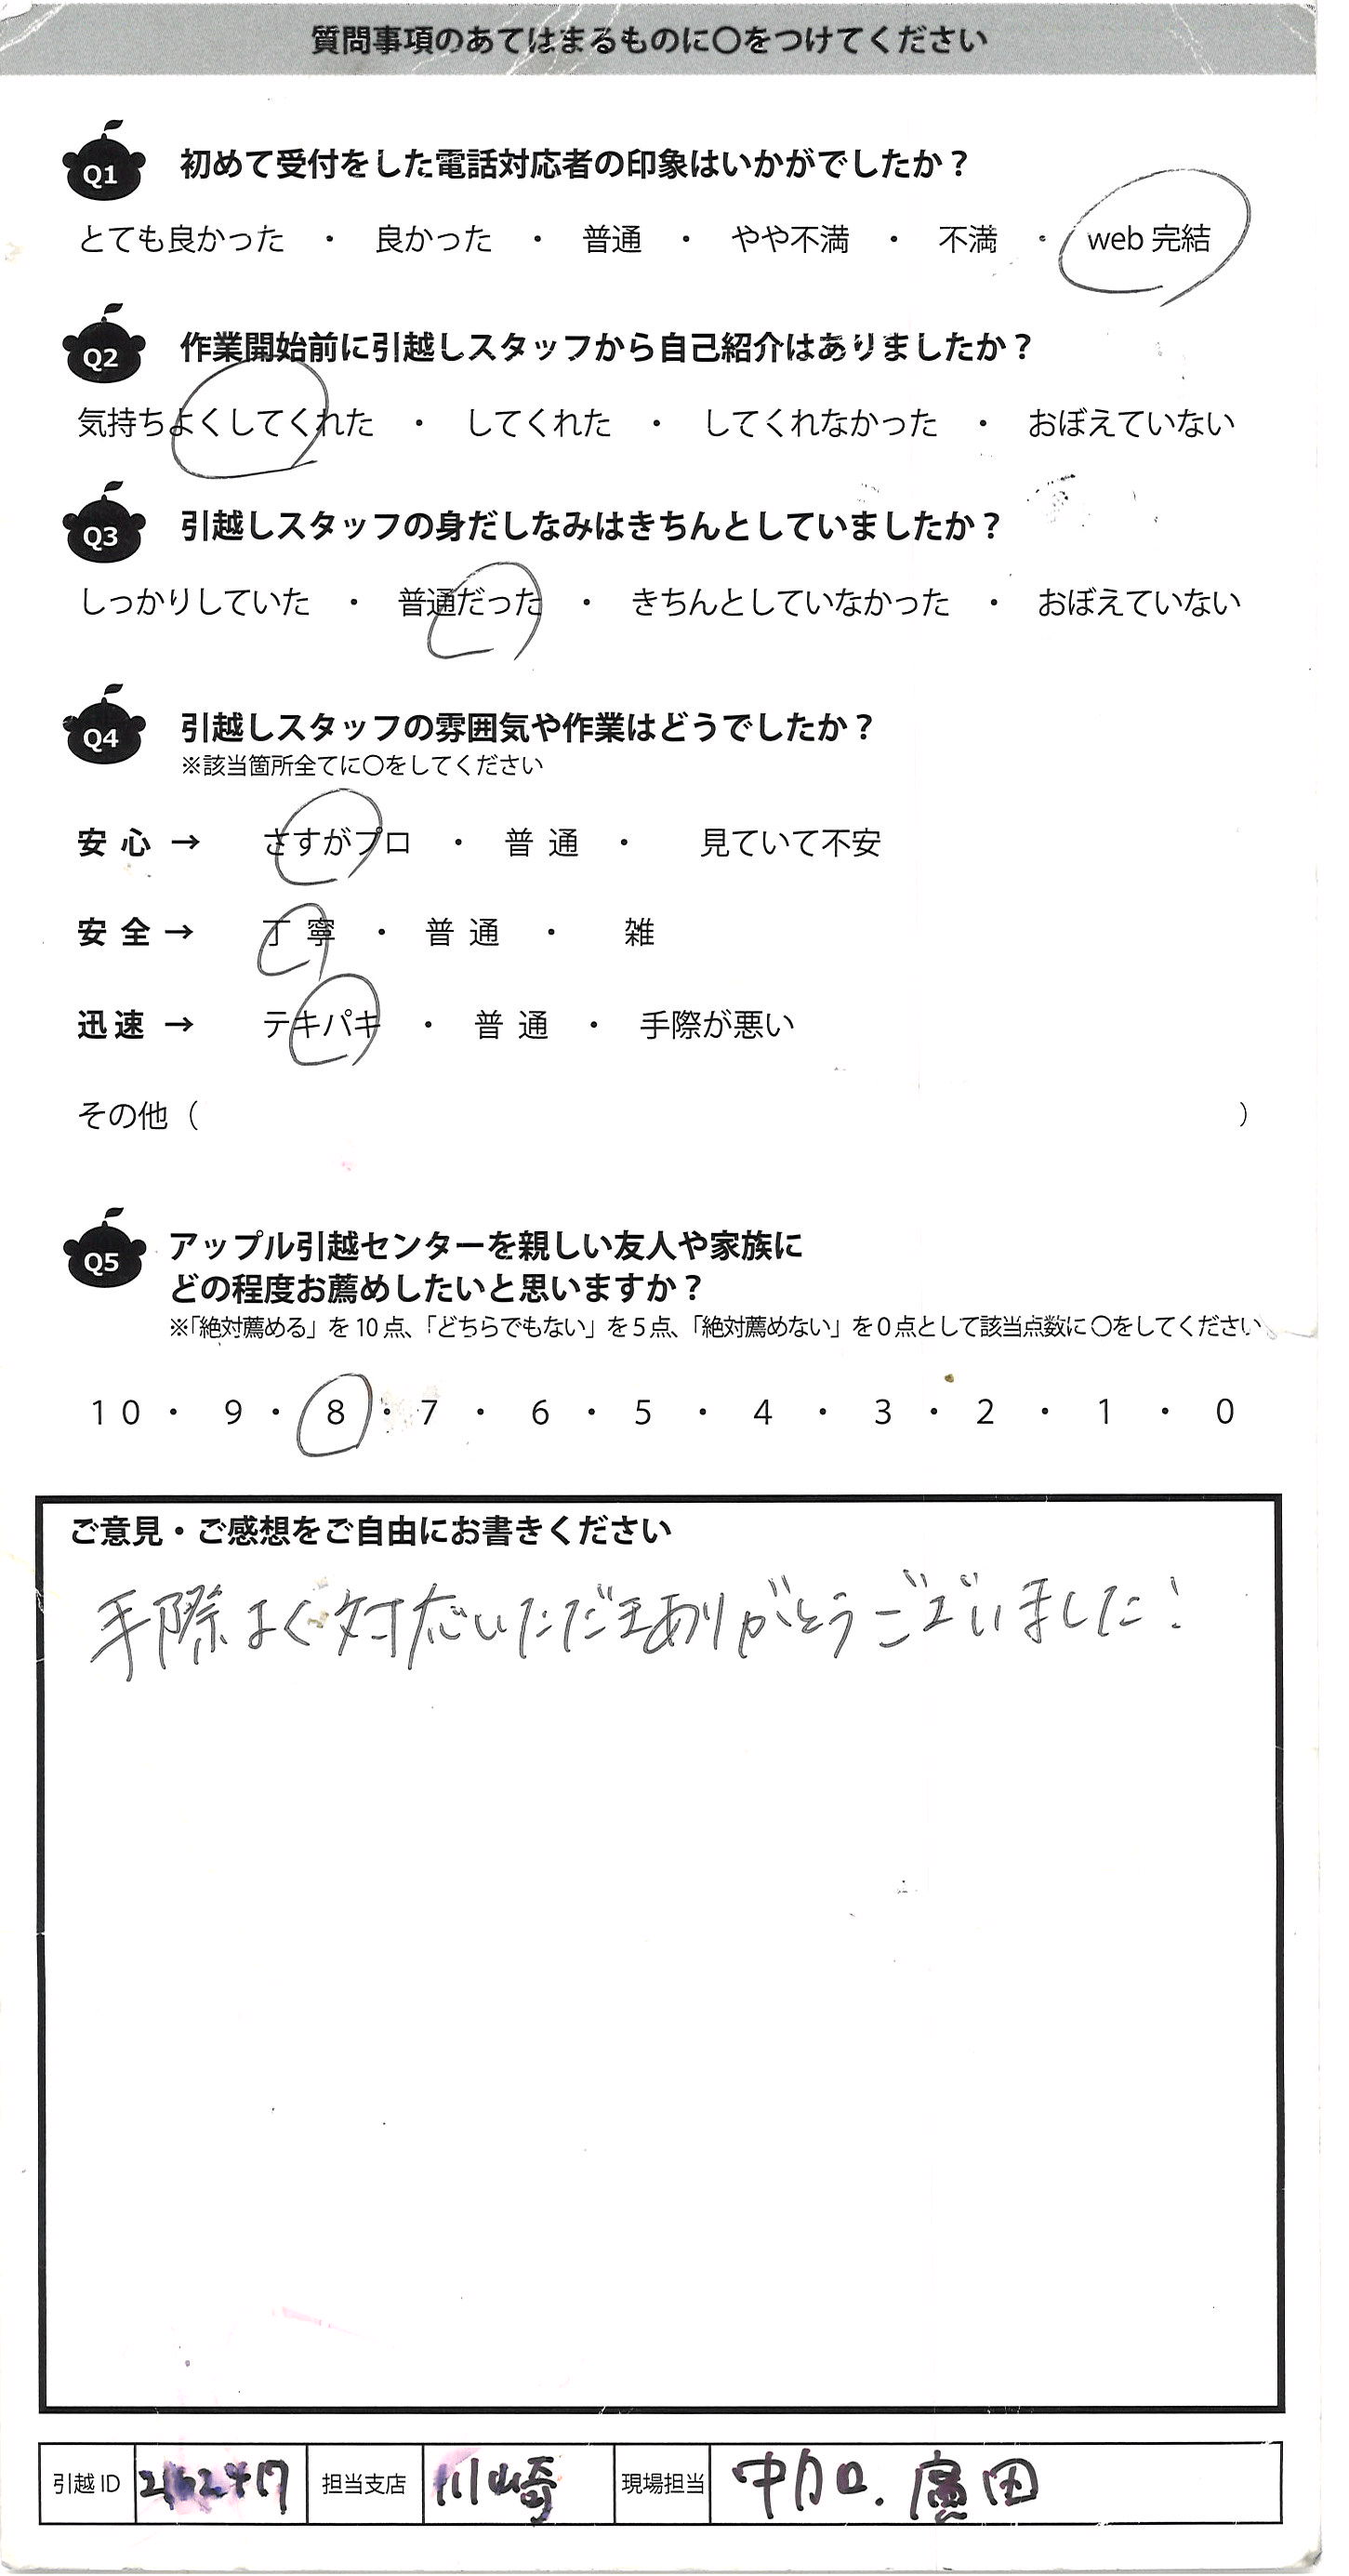 質問事項のあてはまるものに〇をつけてください
Q1 初めて受付をした電話対応者の印象はいかがでしたか？
とても良かった ・ 良かった ・ 普通 ・ やや不満 ・ 不満 ・ web 完結
Q2 作業開始前に引越しスタッフから自己紹介はありましたか？
気持ちよくしてくれた ・ してくれた ・ してくれなかった ・ おぼえていない
Q3 引越しスタッフの身だしなみはきちんとしていましたか？
しっかりしていた ・ 普通だった ・ きちんとしていなかった ・ おぼえていない
Q4 引越しスタッフの雰囲気や作業はどうでしたか？
※該当箇所全てに〇をしてください
安心 → さすがプロ ・ 普通 ・ 見ていて不安
安全 → 丁寧 ・ 普通 ・ 雑
迅速 → テキパキ ・ 普通 ・ 手際が悪い
その他（ ）
Q5 アップル引越センターを親しい友人や家族に
どの程度お薦めしたいと思いますか？
※「絶対薦める」を10点、「どちらでもない」を5点、「絶対薦めない」を0点として該当点数に〇をしてください
10 ・ 9 ・ 8 ・ 7 ・ 6 ・ 5 ・ 4 ・ 3 ・ 2 ・ 1 ・ 0
ご意見・ご感想をご自由にお書きください
手際よく対応いただきありがとうございました！
引越ID 担当支店 川崎 現場担当 廣田